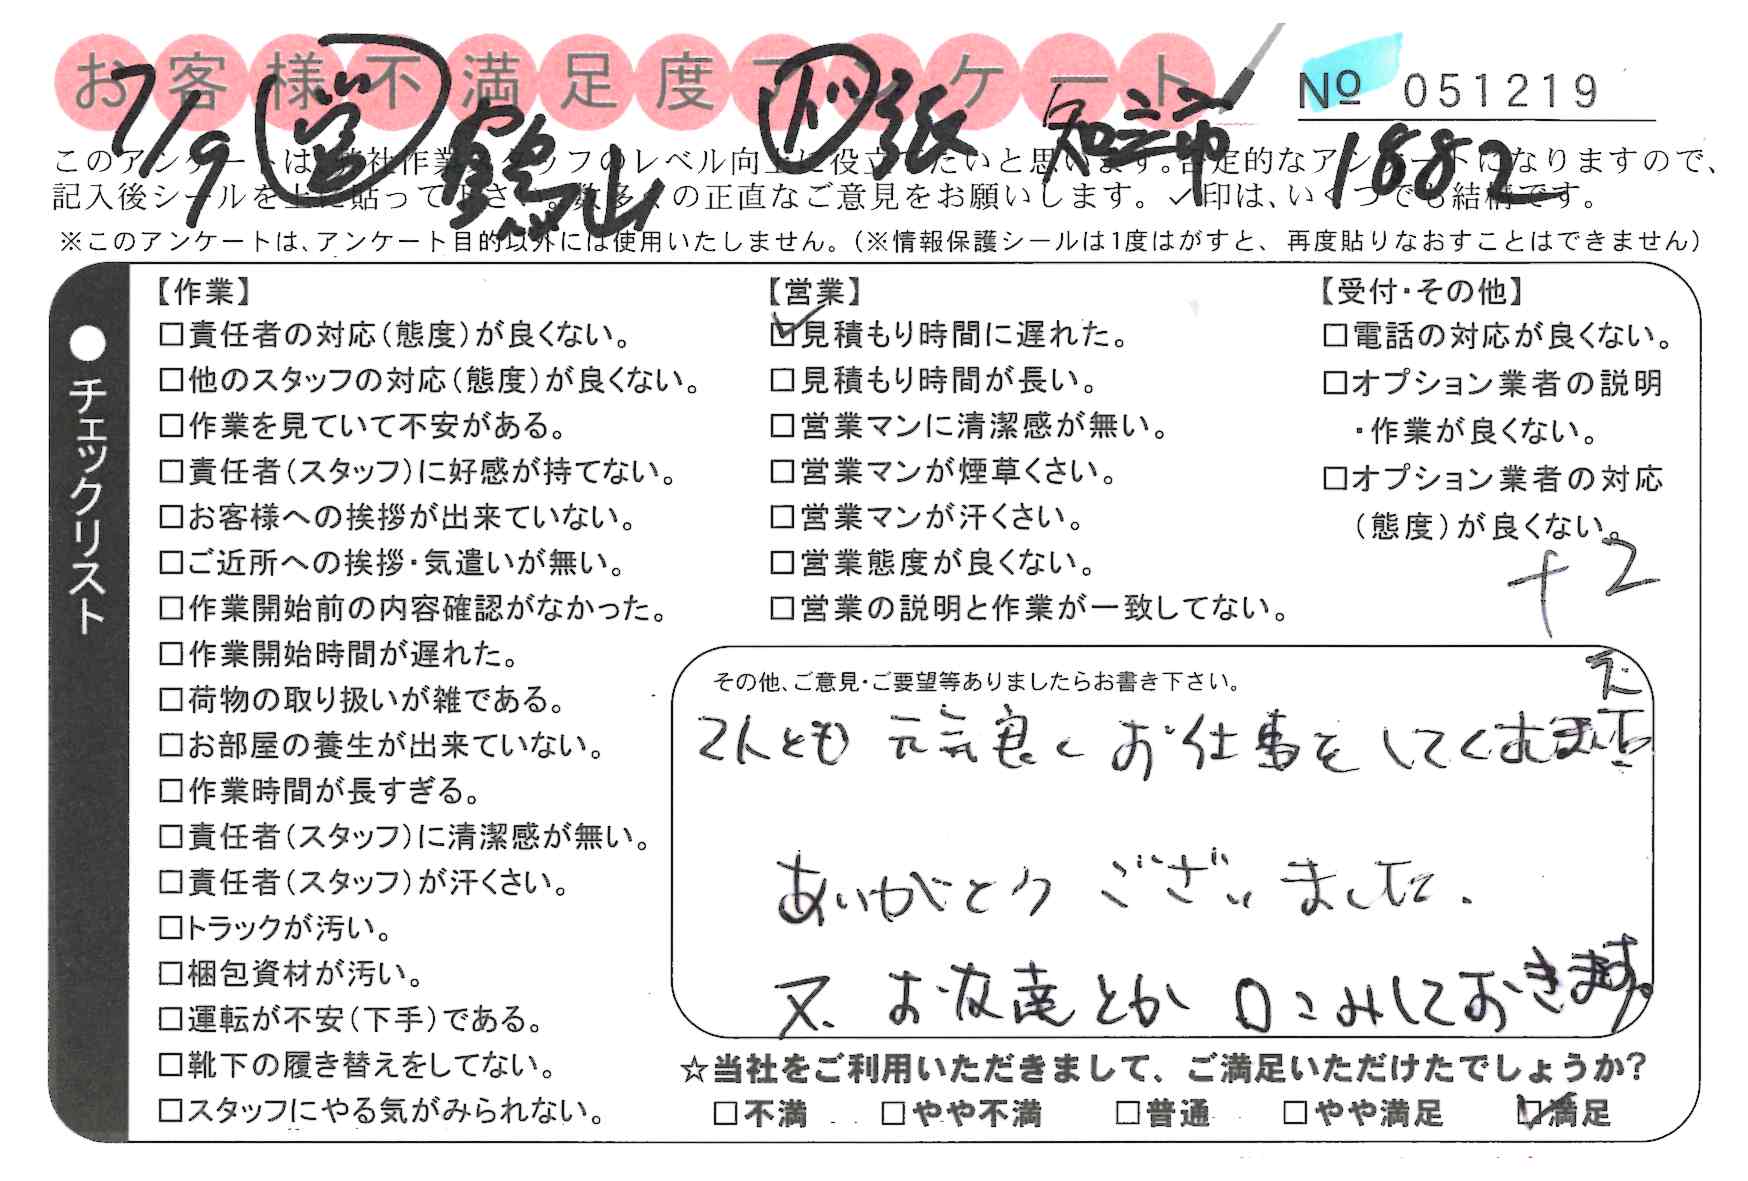 お客様不満足度アンケート
№ 051219
7/9 営 鶴山 ド 張 知立市 1882
このアンケートは、弊社作業スタッフのレベル向上に役立てたいと思います。否定的なアンケートになりますので、
記入後シールを上に貼って下さい。数多くの正直なご意見をお願いします。✓印は、いくつでも結構です。
※このアンケートは、アンケート目的以外には使用いたしません。(※情報保護シールは1度はがすと、再度貼りなおすことはできません)
●チェックリスト
【作業】
□責任者の対応(態度)が良くない。
□他のスタッフの対応(態度)が良くない。
□作業を見ていて不安がある。
□責任者(スタッフ)に好感が持てない。
□お客様への挨拶が出来ていない。
□ご近所への挨拶・気遣いが無い。
□作業開始前の内容確認がなかった。
□作業開始時間が遅れた。
□荷物の取り扱いが雑である。
□お部屋の養生が出来ていない。
□作業時間が長すぎる。
□責任者(スタッフ)に清潔感が無い。
□責任者(スタッフ)が汗くさい。
□トラックが汚い。
□梱包資材が汚い。
□運転が不安(下手)である。
□靴下の履き替えをしてない。
□スタッフにやる気がみられない。
【営業】
☑見積もり時間に遅れた。
□見積もり時間が長い。
□営業マンに清潔感が無い。
□営業マンが煙草くさい。
□営業マンが汗くさい。
□営業態度が良くない。
□営業の説明と作業が一致してない。
【受付・その他】
□電話の対応が良くない。
□オプション業者の説明
・作業が良くない。
□オプション業者の対応
(態度)が良くない。
+2
その他、ご意見・ご要望等ありましたらお書き下さい。
2人とも 元気良く お仕事を してくださいまして
ありがとう ございました.
又. お友達とか 口こみしておきます。
☆当社をご利用いただきまして、ご満足いただけたでしょうか?
□不満 □やや不満 □普通 □やや満足 ☑満足